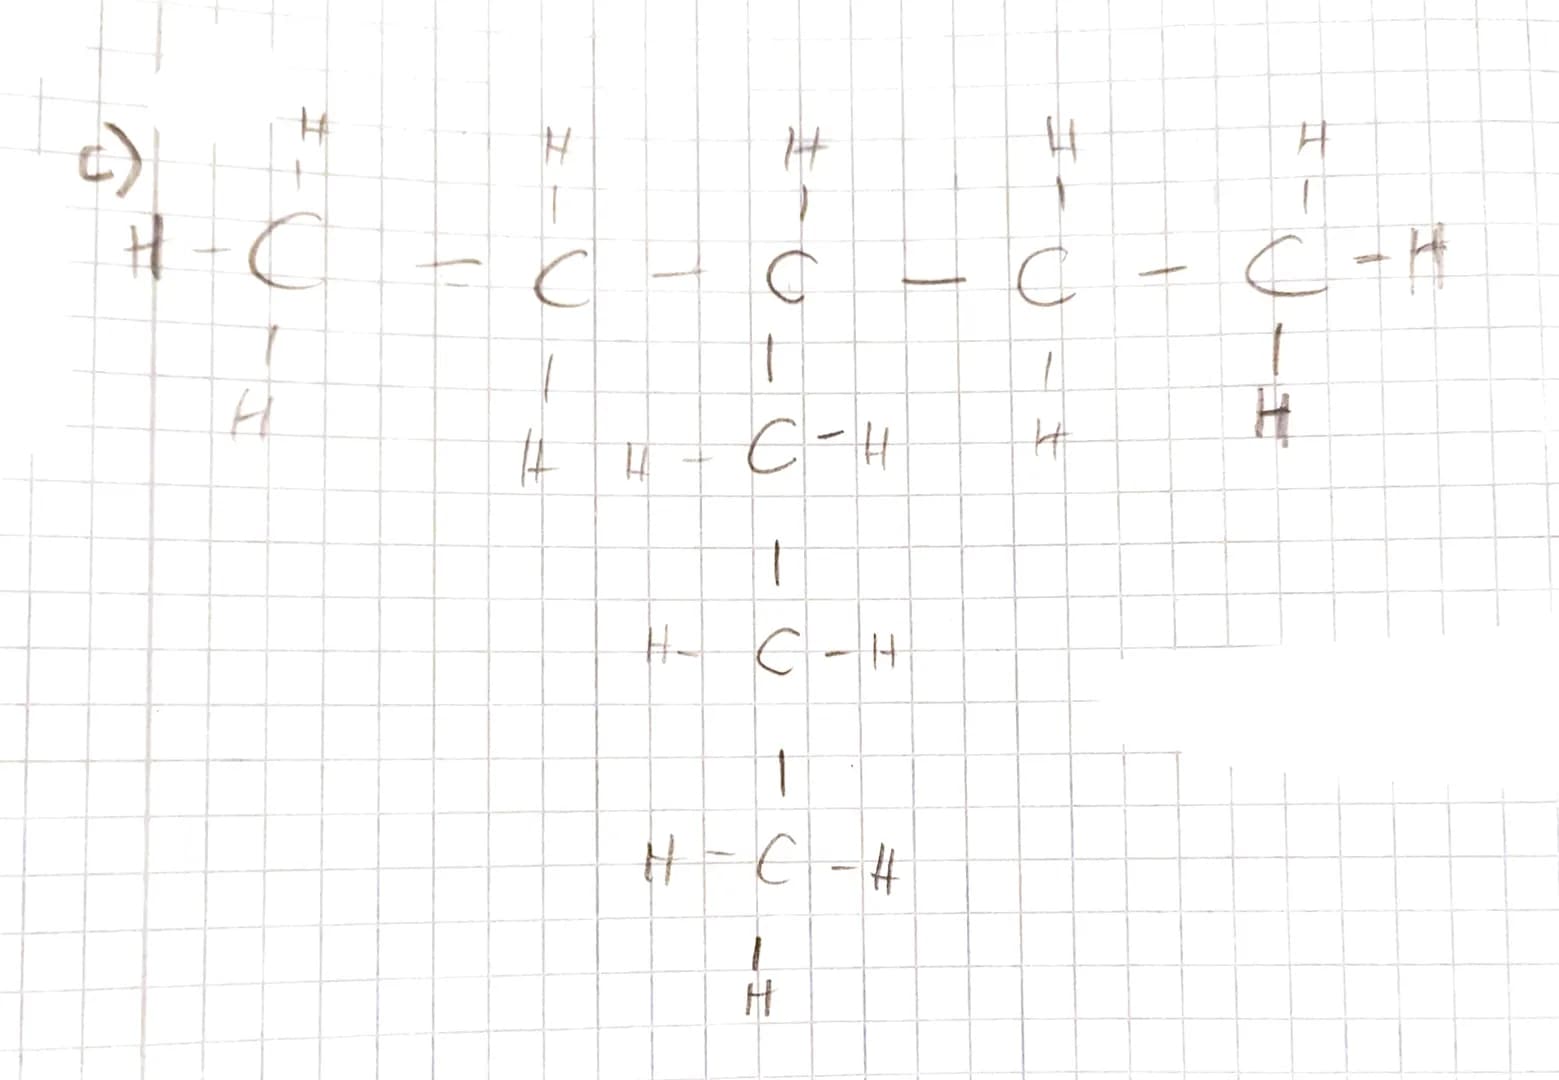 c)
H H H H H
H - C = C - C - C - C - H
H H H - C - H H H
H - C - H
H - C - H
H